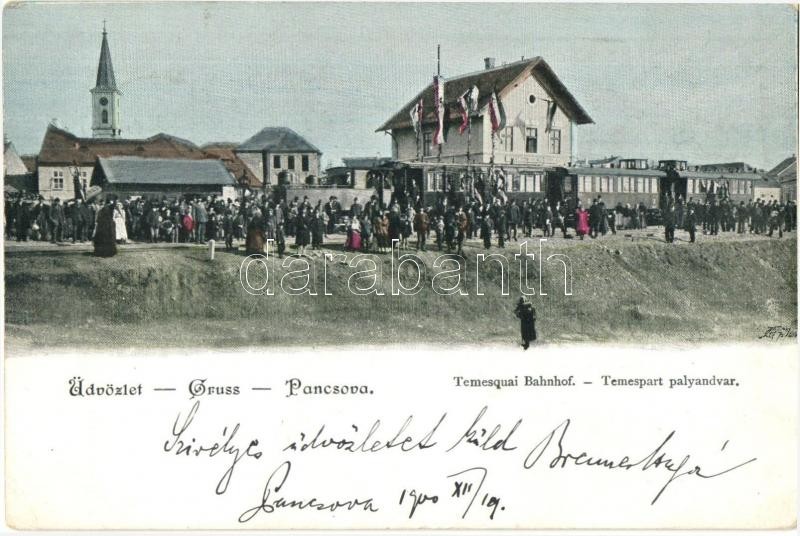 darabanth
Üdvözlet — Gruss — Pancsova.
Temesquai Bahnhof. – Temespart palyandvar.
Szivélyes üdvözletet küld
Pancsova 1900 XII/19.